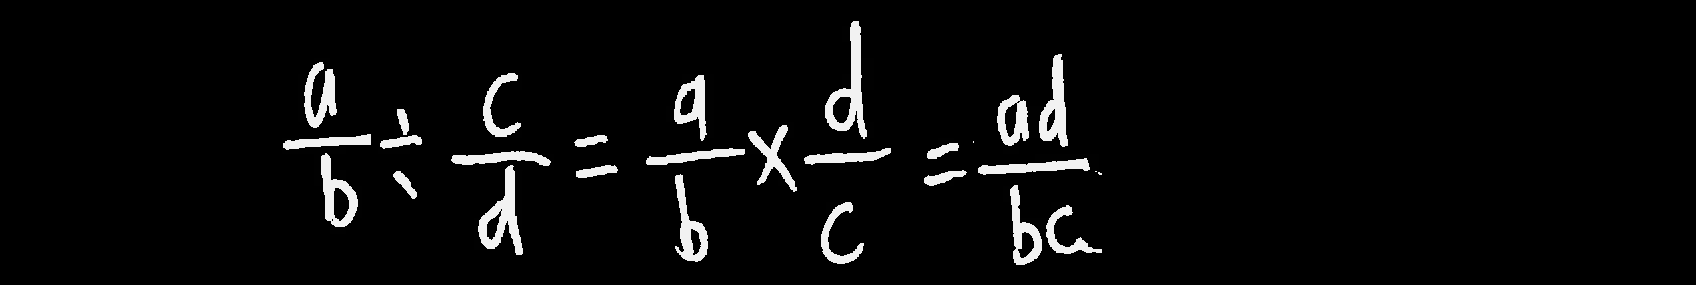 a/b ÷ c/d = a/b × d/c = ad/bc